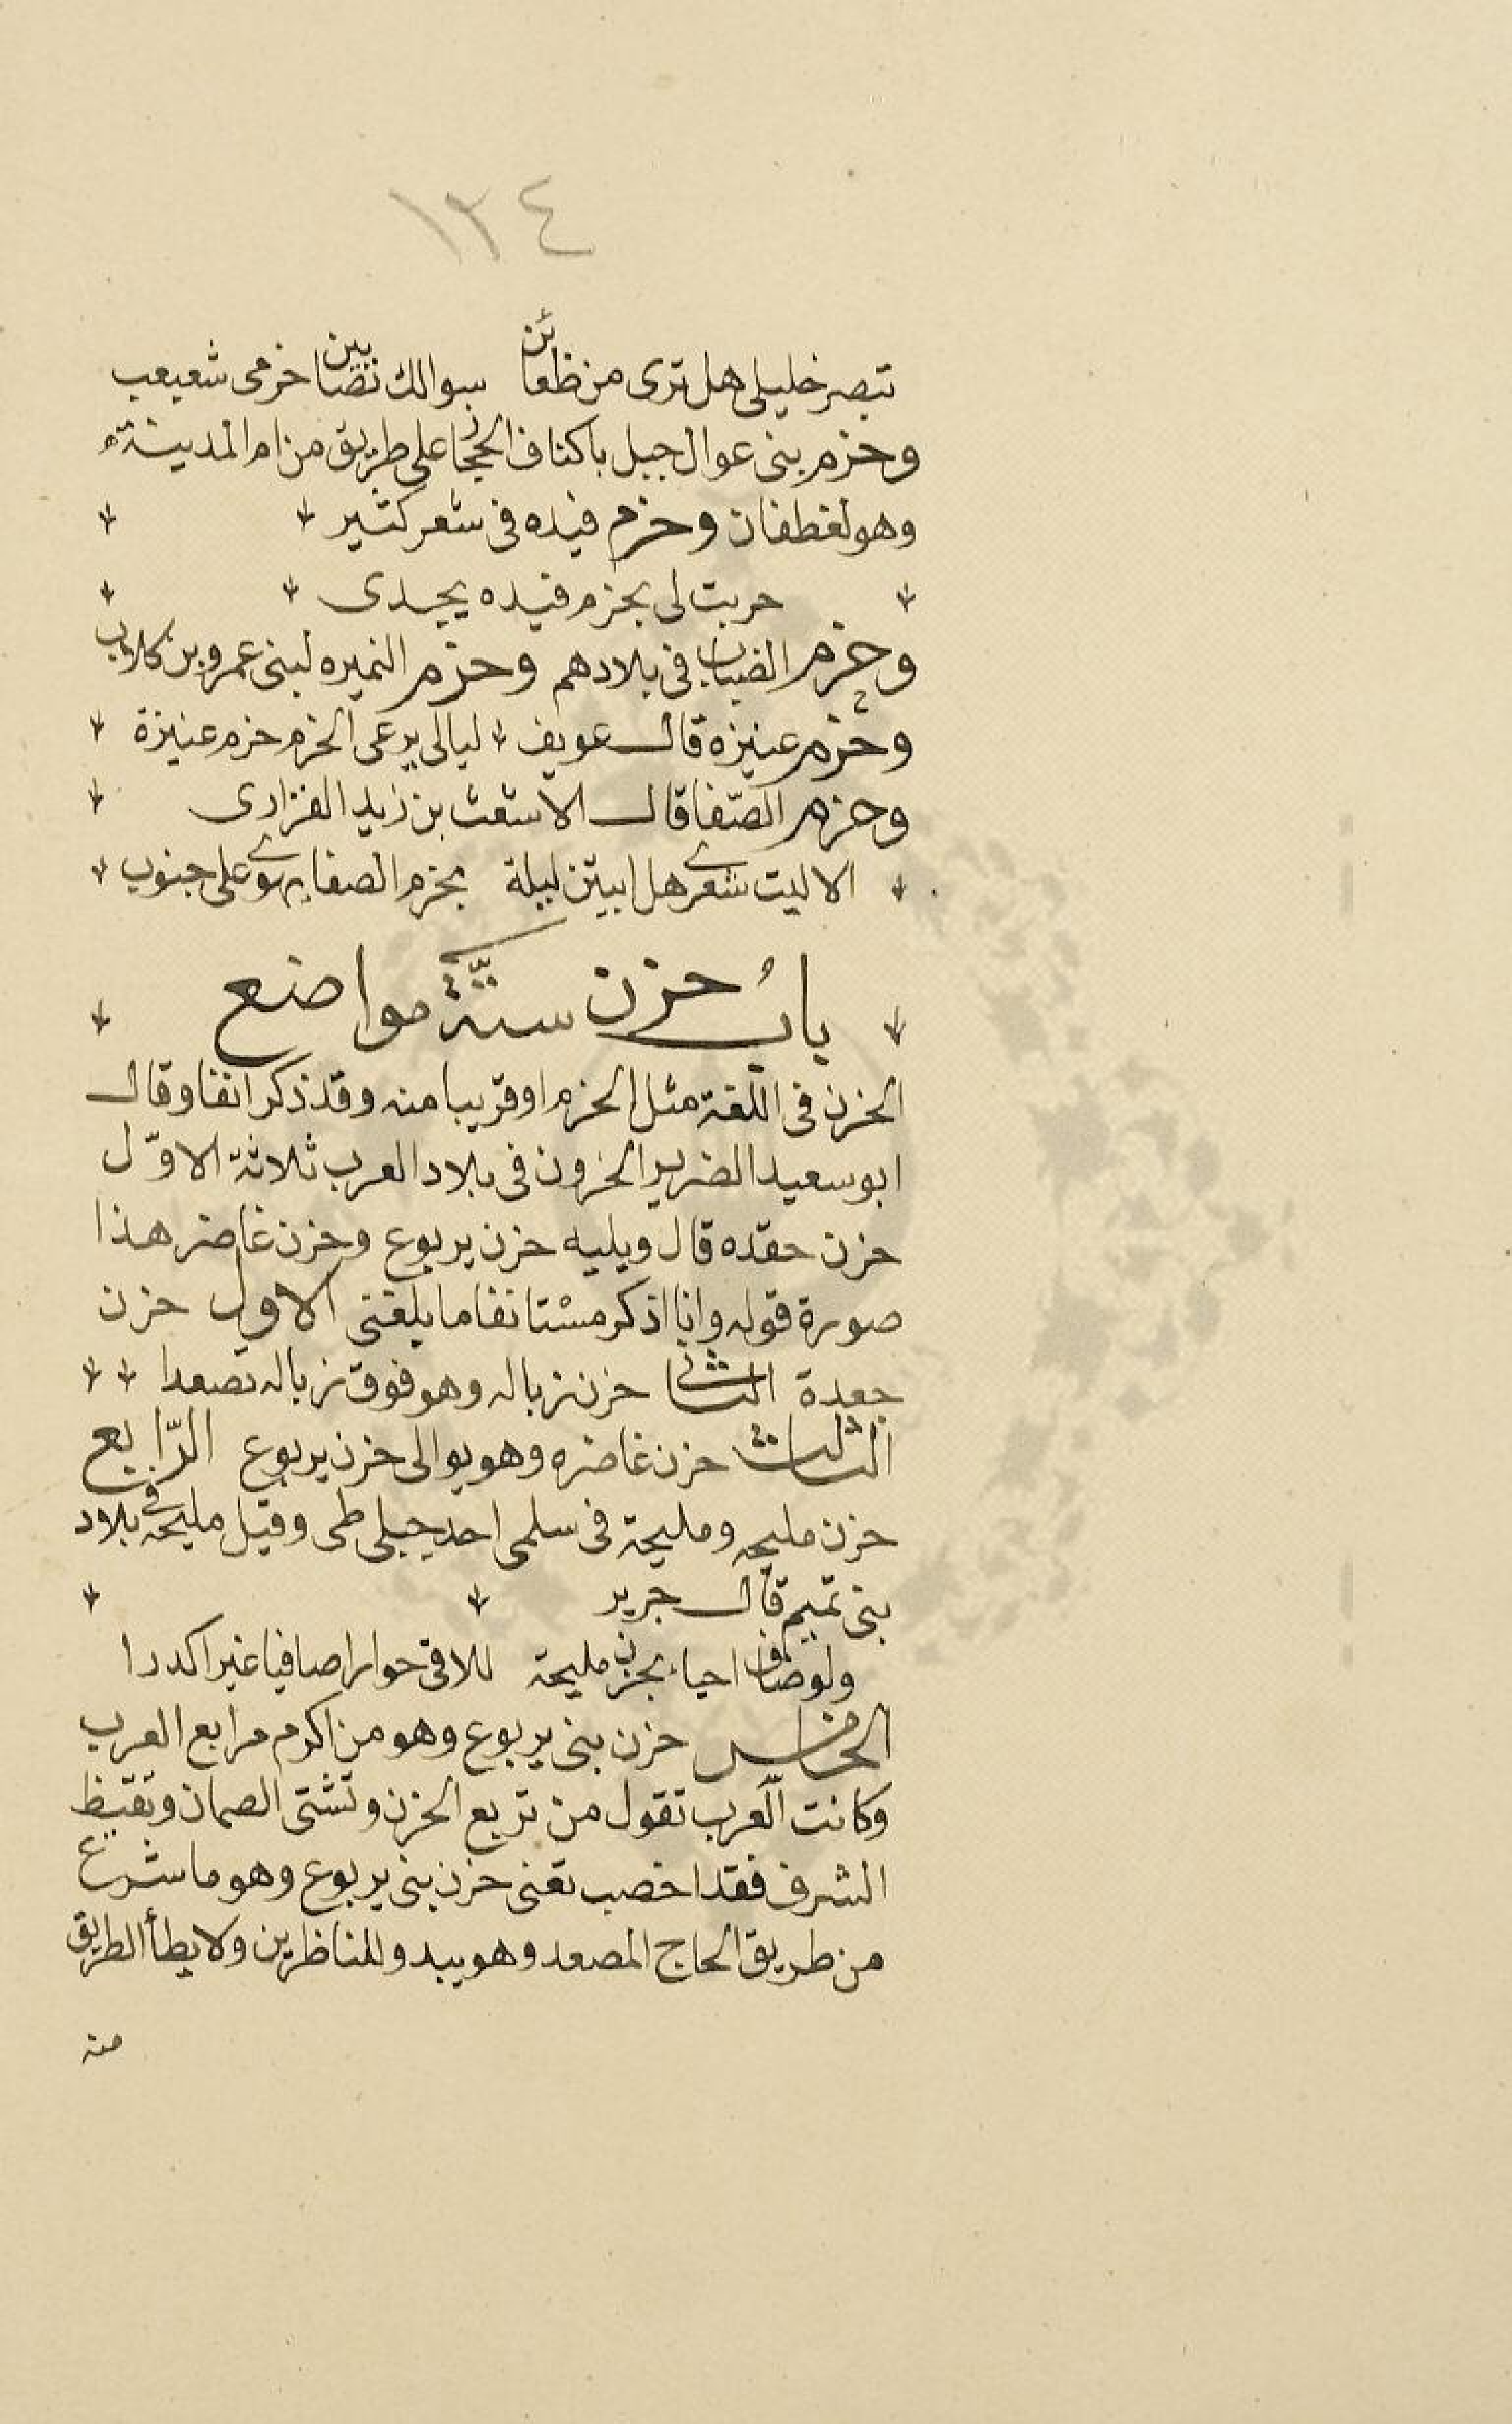 ١٣٤
تبصر خليلى هل ترى من ظعائن سوالك نقبا بين خزمى شعبعب
وخزم بنى عوال جبل باكناف الحجاز على طريق من ام المدينة
وهو لغطفان وحزم فيده فى شعر كثير
حربت لى بحزم فيده يحدى
وحزم الضباب فى بلادهم وحزم النميره لبنى عمرو بن كلاب
وخزم عنيزه قال عويف ليالى يرعى الخزم خزم عنيزة
وحزم الصّفا قال الاشعث بن زيد الفزارى
الا ليت شعرى هل ابيتن ليلة بحزم الصفا على جنوب
باب حزن ستّة مواضع
الخزن فى اللغة مثل الحزم او قريبا منه وقد ذكر انفا وقال
ابو سعيد الضرير الخزون فى بلاد العرب ثلاثة الاوّل
حزن حقده قال ويليه حزن يربوع وخزن غاضر هذا
صورة قوله وانا اذكر مستانفا ما بلغنى الاول حزن
جعدة الثانى حزن زباله وهو فوق زباله تصعدا
الثالث حزن غاضره وهو يوالى خزن يربوع الرّابع
حزن مليحه ومليحة فى سلمى احد جبلى طى وقيل مليحه فى بلاد
بنى تميم قال جرير
ولو ضاف احياء بحزن مليحة للاقى حوارا صافيا غير اكدرا
الخامس خزن بنى يربوع وهو من اكرم مرابع العرب
وكانت العرب تقول من تربع الخزن وتشتى الصمان وتقيظ
الشرف فقد اخصب تعنى خزن بنى يربوع وهو ما شرع
من طريق الحاج المصعد وهو يبدو للناظرين ولا يطأ الطريق
منه